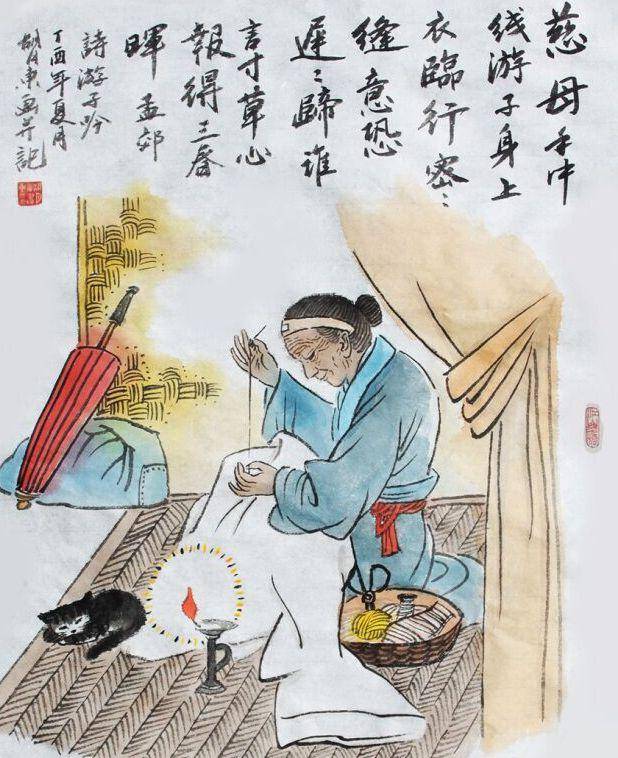 慈母手中
线游子身上
衣臨行密々
縫意恐
遲々歸谁
言寸草心
報得三春
暉 孟郊
詩游子吟
丁酉年夏月
画并記